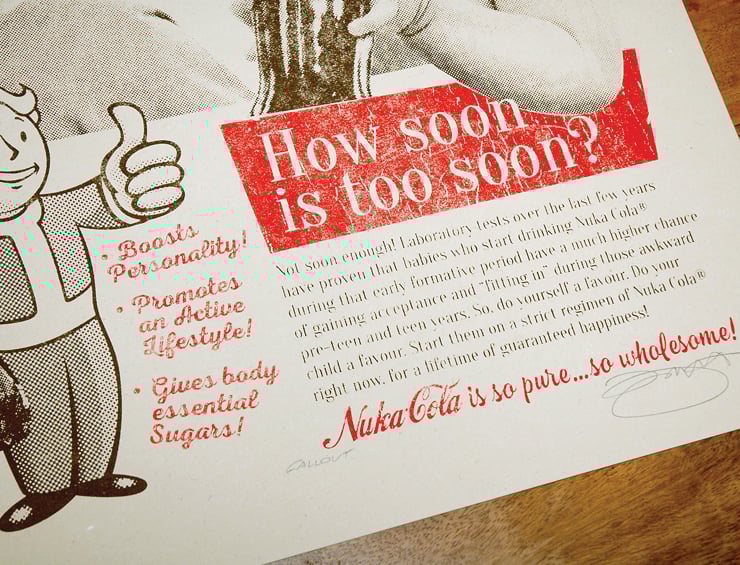 How soon
is too soon?
• Boosts
Personality!
• Promotes
an Active
Lifestyle!
• Gives body
essential
Sugars!
Not soon enough! Laboratory tests over the last few years
have proven that babies who start drinking Nuka Cola®
during that early formative period have a much higher chance
of gaining acceptance and "fitting in" during those awkward
pre-teen and teen years. So, do yourself a favour. Do your
child a favour. Start them on a strict regimen of Nuka Cola®
right now, for a lifetime of guaranteed happiness!
Nuka Cola is so pure...so wholesome!
FALLOUT